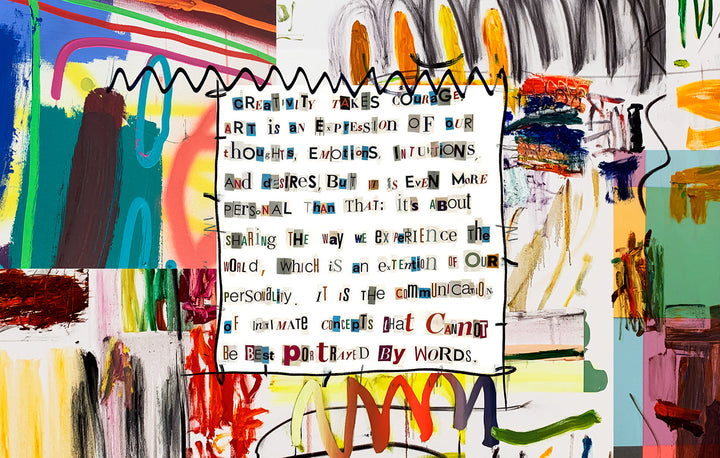 CREATIVITY TAKES COURAGE.
ART iS AN ExPRESSiON OF OUR
thOuGHTS, EMOTiONS, INTUITIONS,
AND dESIRES, BuT IT iS EVEN MORE
PERSONAL THAN THAT: it's ABOUT
SHARING THE WAY WE EXPERIENCE the
WORLD, WHICH iS AN exTENtiON OF OUR
PERSONAlity. IT IS THE COMMUNICATiON
OF iNtiMATE CONCEPTS tHAT CANNOT
Be BEst PORTRAYED By WORDS.